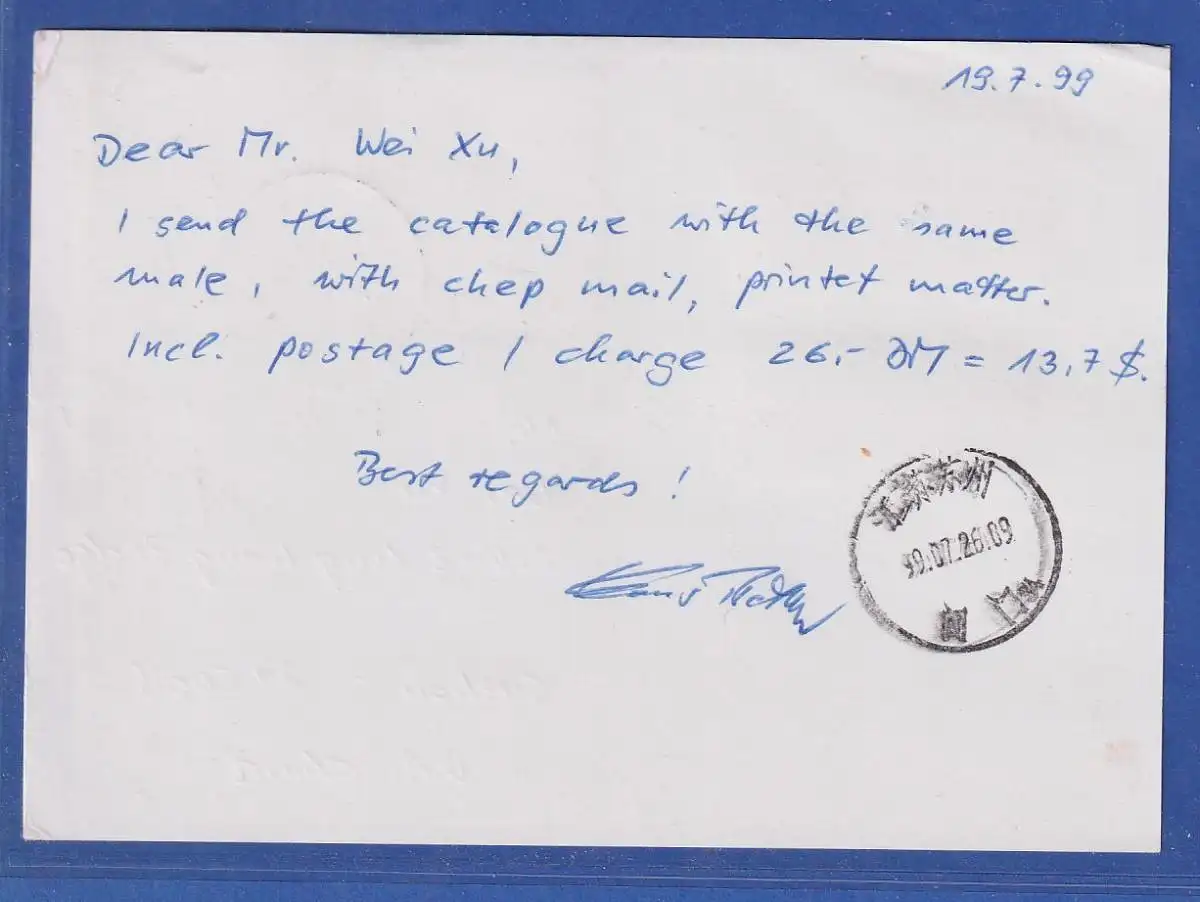 19.7.99
Dear Mr. Wei Xu,
I send the catalogue with the same
male, with chep mail, printet matter.
Incl. postage I charge 26,- DM = 13,7 $.
Best regards!
99.07.26.09